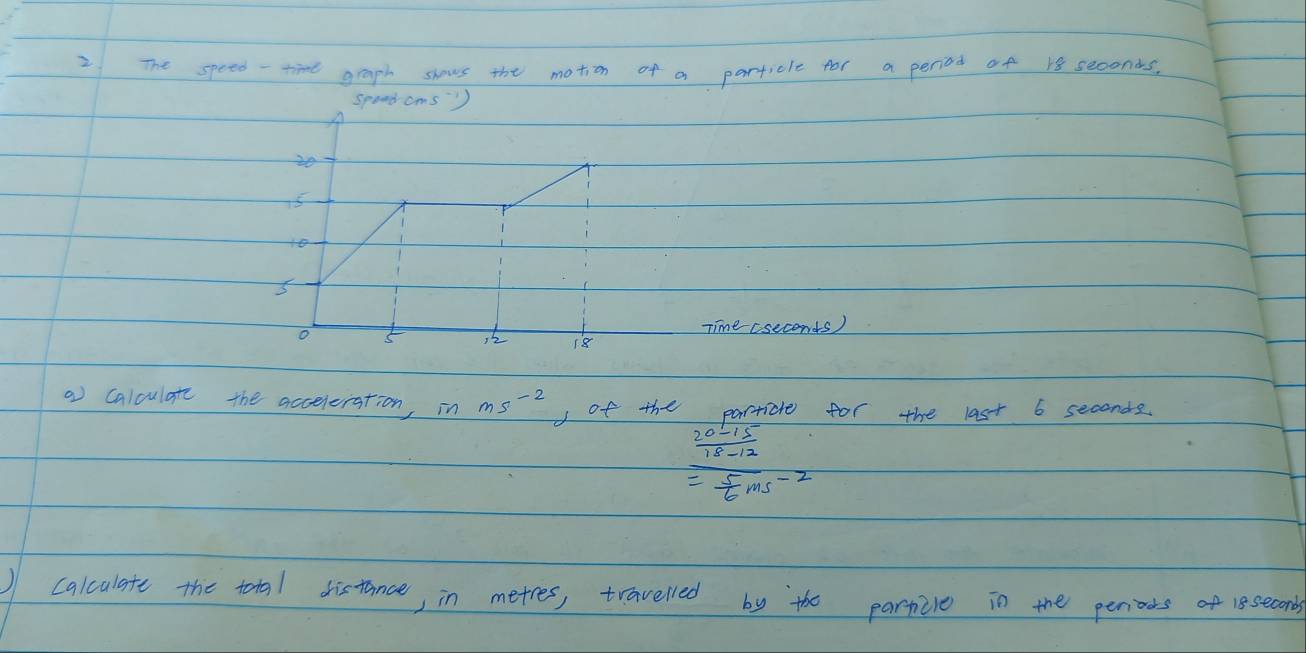 2. The speed - time graph shows the motion of a particle for a period of 18 seconds.
speed (ms⁻¹)
20
15
10
5
0 5 12 18
Time (seconds)
a) Calculate the acceleration, in ms⁻², of the particle for the last 6 seconds.
20-15
18-12
= 5/6 ms⁻²
) Calculate the total distance, in metres, travelled by the particle in the periods of 18 seconds